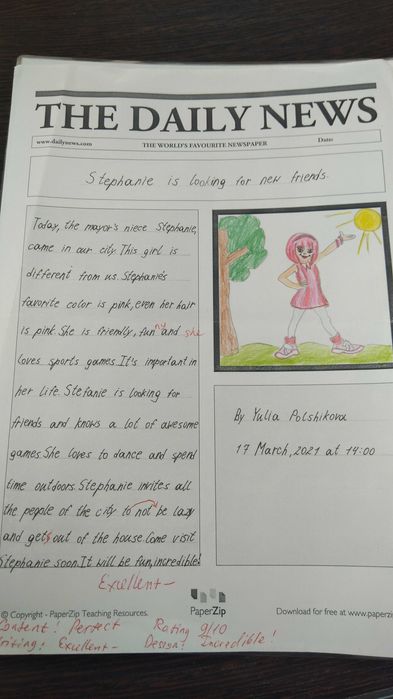 THE DAILY NEWS
www.dailynews.com THE WORLD'S FAVOURITE NEWSPAPER Date:
Stephanie is looking for new friends.
Today, the mayor's niece Stephanie,
came in our city. This girl is
different from us. Stephanie's
favorite color is pink, even her hair
is pink. She is friendly, funny and she
loves sports games. It's important in
her life. Stefanie is looking for
friends and knows a lot of awesome
games. She loves to dance and spend
time outdoors. Stephanie invites all
the people of the city to not be lazy
and gets out of the house. Come visit
Stephanie soon. It will be fun, incredible!
By Yulia Polshikova
17 March, 2021 at 14:00
Excellent-
© Copyright - PaperZip Teaching Resources. PaperZip Download for free at www.paperzi
Content: Perfect Rating 9/10
Writing: Excellent- Design: Incredible!